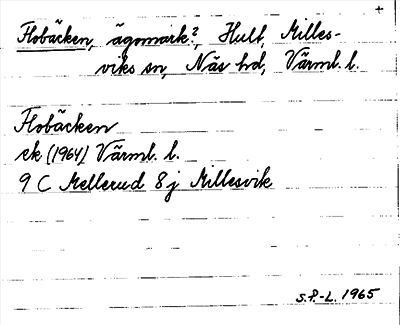 +
Flobäcken, ägomark?, Hult, Milles-
viks sn, Näs hd, Värml. l.
Flobäcken
ek (1964) Värml. l.
9 C Mellerud 8 j Millesvik
S.P.-L. 1965